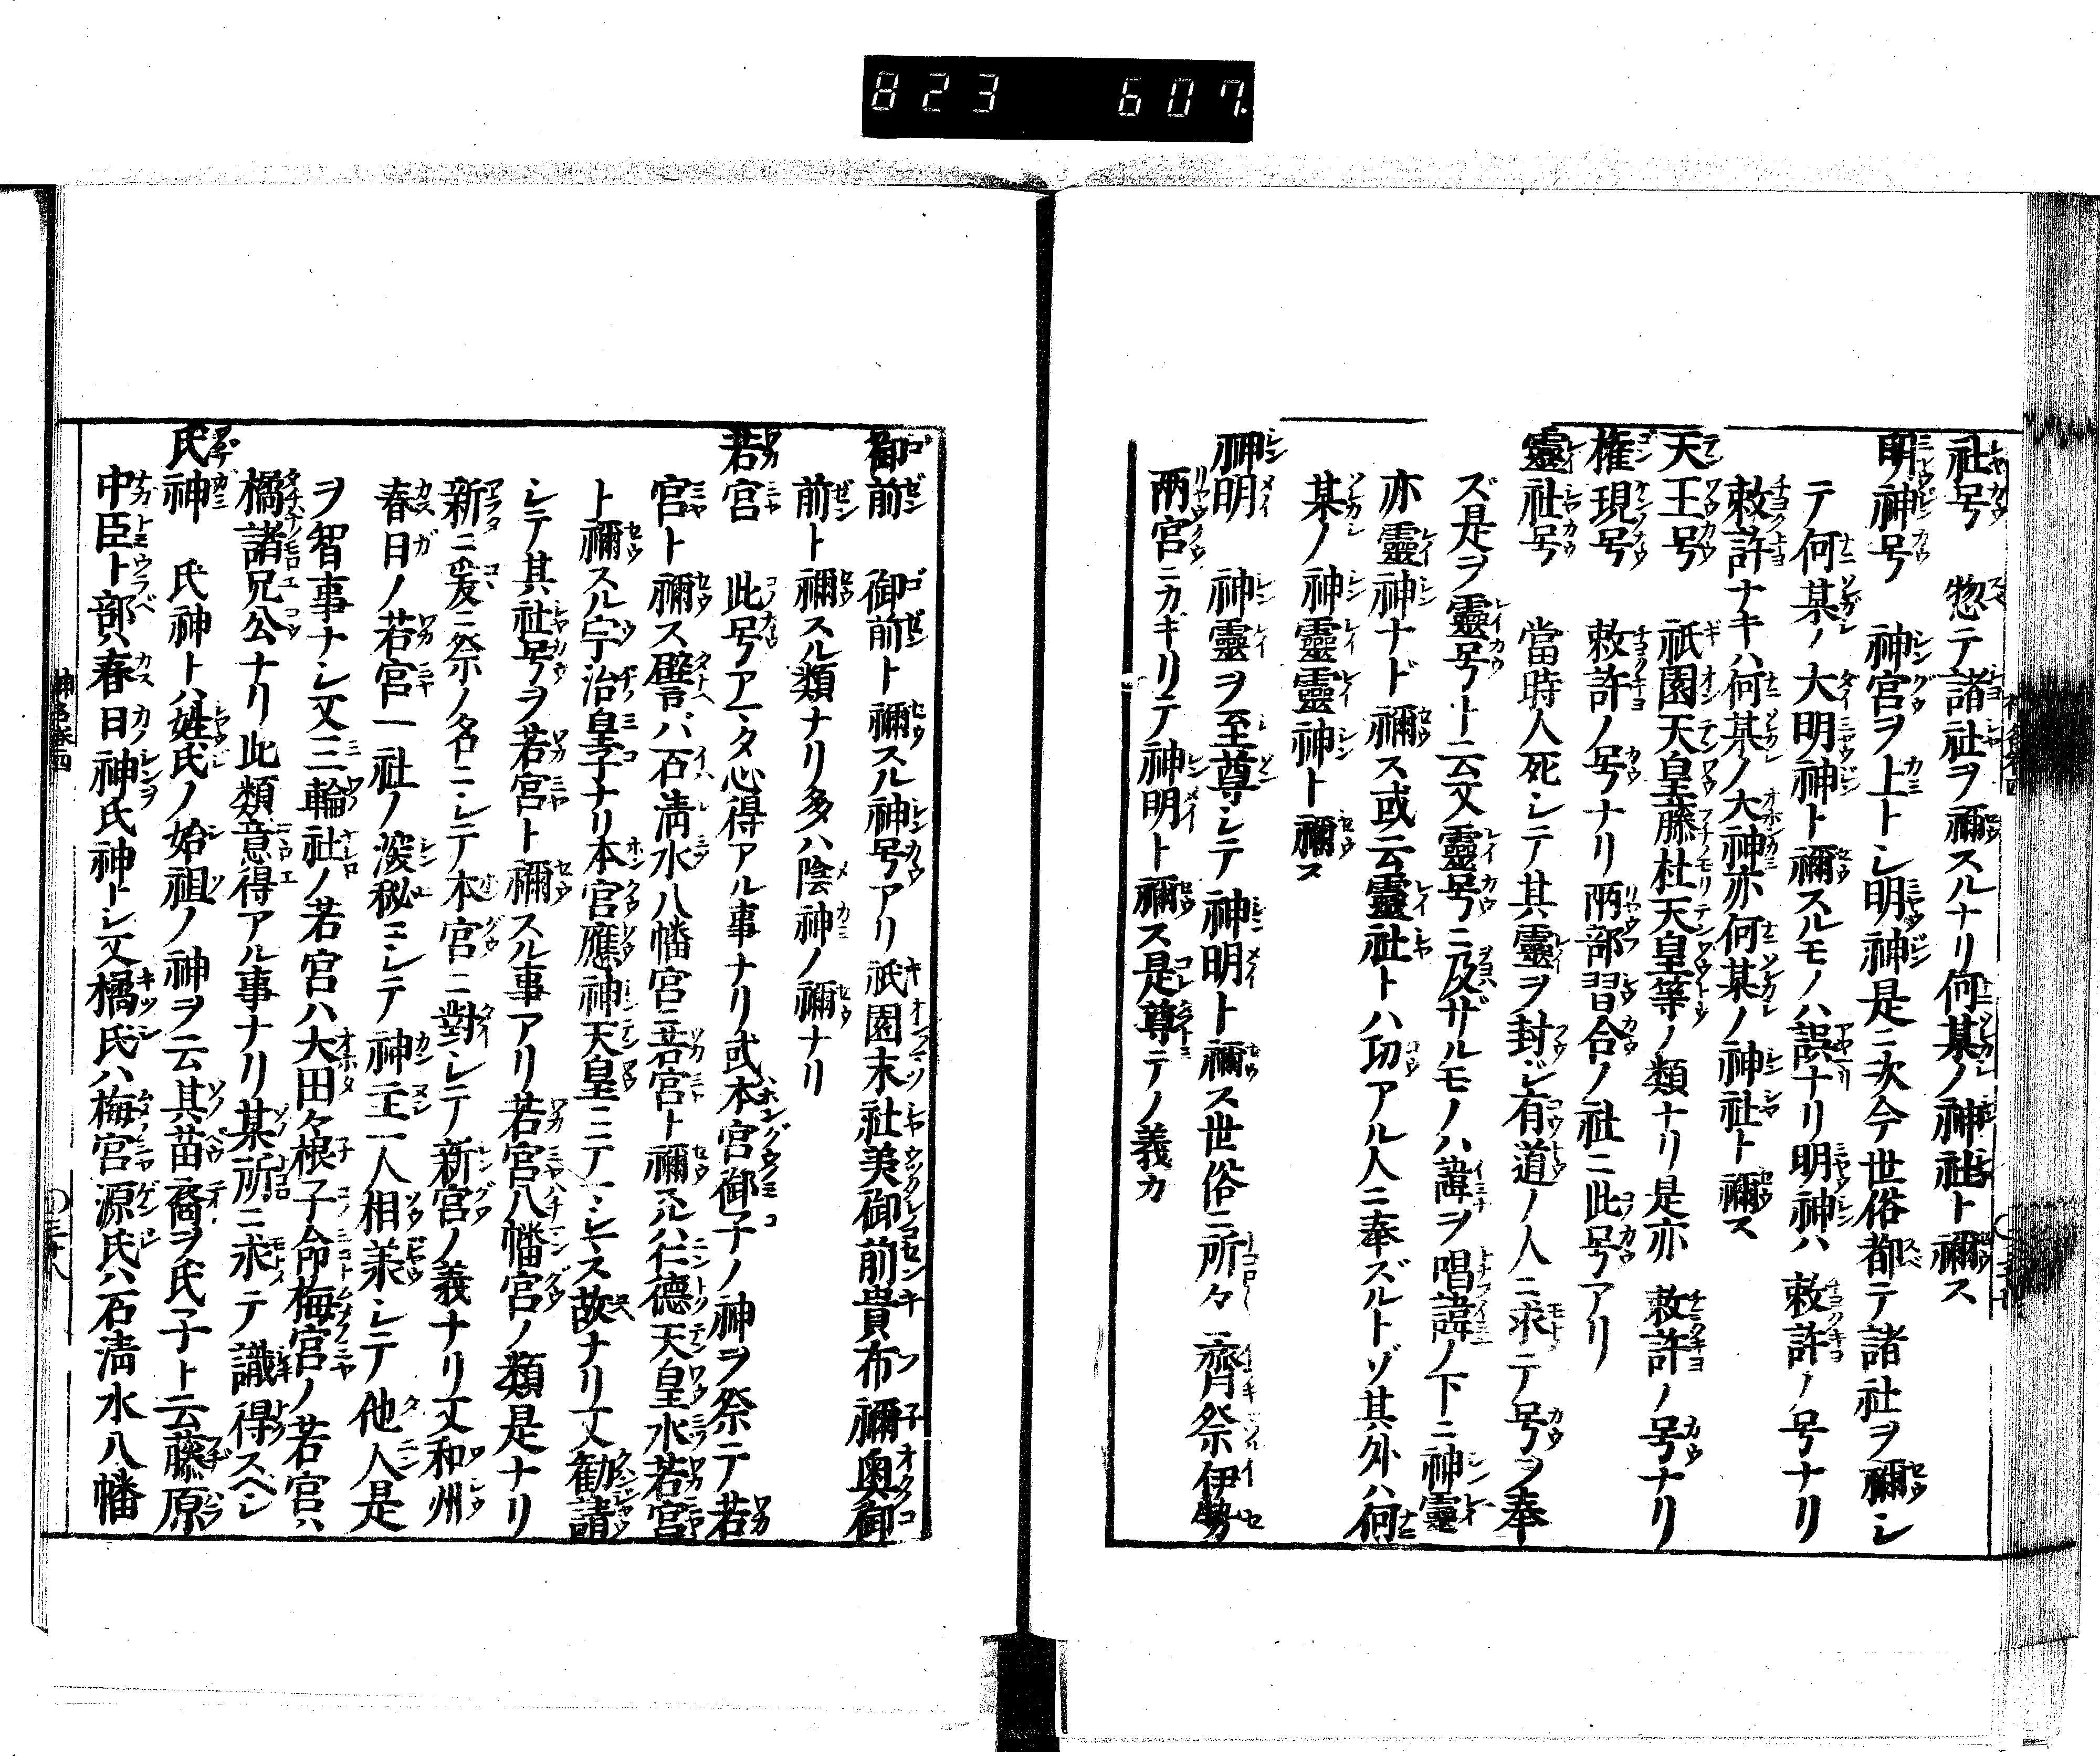 823 607.
社号 惣テ諸社ヲ稱スルナリ何某ノ神社ト稱ス
明神号 神宮ヲ上トシ明神是ニ次今世俗都テ諸社ヲ稱シ
テ何某ノ大明神ト稱スルモノハ誤ナリ明神ハ敕許ノ号ナリ
敕許ナキハ何某ノ大神亦何某ノ神社ト稱ス
天王号 祇園天皇藤杜天皇等ノ類ナリ是亦敕許ノ号ナリ
権現号 敕許ノ号ナリ両部習合ノ社ニ此号アリ
靈社号 當時人死シテ其靈ヲ封ジ有道ノ人ニ求テ号ヲ奉
ズ是ヲ靈号ト云又靈号ニ及ザルモノハ諱ヲ唱諱ノ下ニ神靈
亦靈神ナド稱ス或云靈社トハ功アル人ニ奉ズルトゾ其外ハ何
某ノ神靈靈神ト稱ス
神明 神靈ヲ至尊シテ神明ト稱ス世俗ニ所々ニ齊祭伊勢
両宮ニカギリテ神明ト稱ス是尊テノ義カ
御前 御前ト稱スル神号アリ祇園末社美御前貴布禰奥御
前ト稱スル類ナリ多ハ陰神ノ稱ナリ
若宮 此号アマタ心得アル事ナリ或本宮御子ノ神ヲ祭テ若
宮ト稱ス譬バ石清水八幡宮ニ若宮ト稱スルハ仁德天皇水若宮
ト稱スル宇治皇子ナリ本宮應神天皇ニテマシマス故ナリ又勧請
シテ其社号ヲ若宮ト稱スル事アリ若宮八幡宮ノ類是ナリ
新ニ爰ニ祭ノ名ニシテ本宮ニ對シテ新宮ノ義ナリ又和州
春日ノ若宮一社ノ深秘ニシテ神主一人相兼シテ他人是
ヲ智事ナシ又三輪社ノ若宮ハ大田々根子命梅宮ノ若宮ハ
橘諸兄公ナリ此類意得アル事ナリ某所ニ求テ識得スベシ
氏神 氏神トハ姓氏ノ始祖ノ神ヲ云其苗裔ヲ氏子ト云藤原
中臣卜部ハ春日神氏神トシ又橘氏ハ梅宮源氏ハ石清水八幡